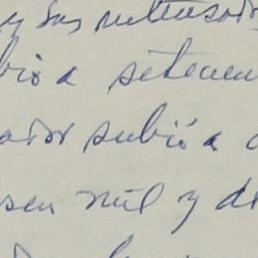 y sus
bió a setecien
ador subió a
sen mil y de